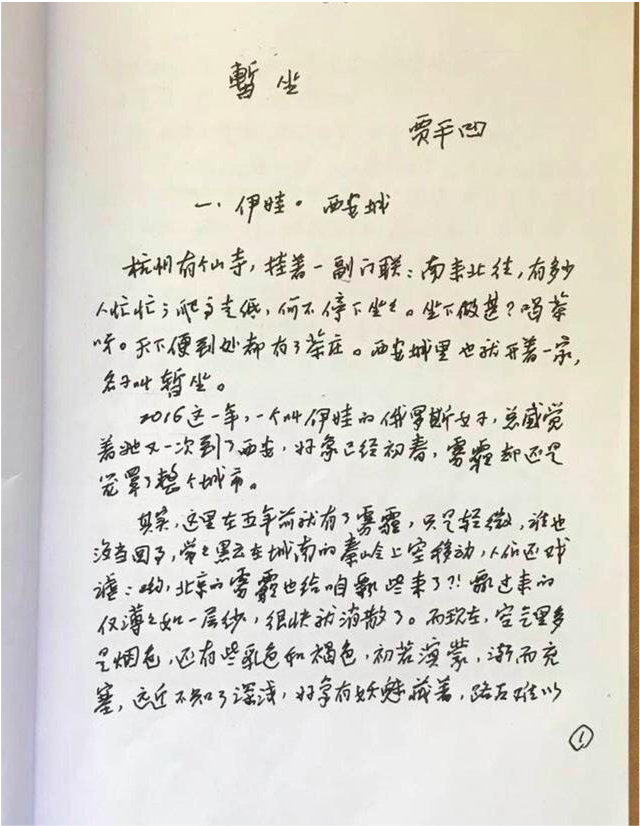 暂坐
贾平凹
一、伊娃。西安城
杭州有个山寺，挂着一副门联：南来北往，有多少
人忙忙；爬高走低，何不停下坐坐。坐下做甚？喝茶
呀。天下便到处都有了茶庄。西安城里也就开着一家，
名子叫暂坐。
2016这一年，一个叫伊娃的俄罗斯女子，总感觉
着她又一次到了西安，好象已经初春，雾霾却还是
笼罩了整个城市。
其实，这里在五年前就有了雾霾，只是轻微，谁也
没当回事，常常黑云在城南的秦岭上空移动，人们还戏
谑：哟，北京的雾霾也给咱飘些来了？！飘过来的
仅薄薄如一层纱，很快就消散了。而现在，空气里多
是烟色，还有些乳色和褐色，初若溟蒙，渐而充
塞，远近不知了深浅，好象有妖魅藏着，路占难以
1